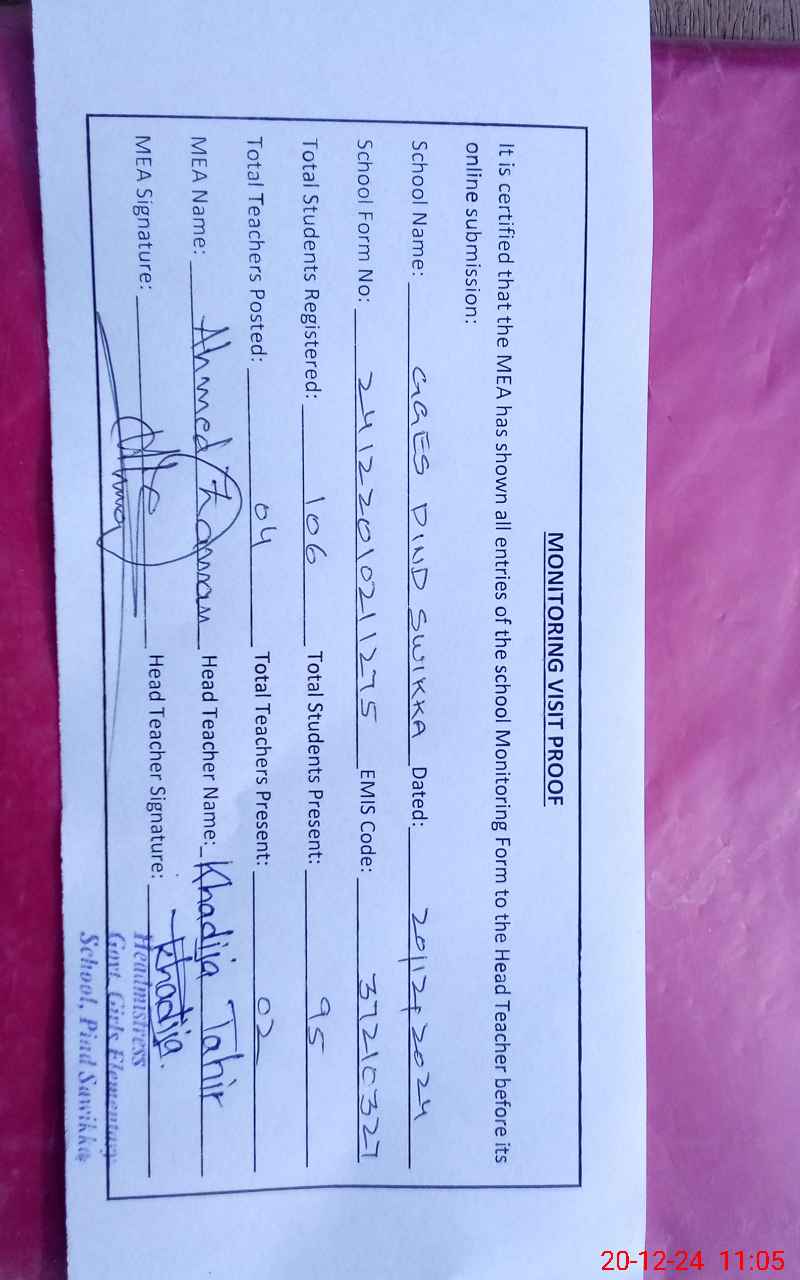 MONITORING VISIT PROOF
It is certified that the MEA has shown all entries of the school Monitoring Form to the Head Teacher before its
online submission:
School Name: GGES PIND SWIKKA Dated: 20/12/2024
School Form No: 24122010211275 EMIS Code: 37210327
Total Students Registered: 106 Total Students Present: 95
Total Teachers Posted: 04 Total Teachers Present: 02
MEA Name: Ahmed Zaman Head Teacher Name: Khadija Tahir
MEA Signature: Head Teacher Signature: Khadija.
Headmistress
Govt. Girls Elementary
School, Pind Suwikka
20-12-24 11:05